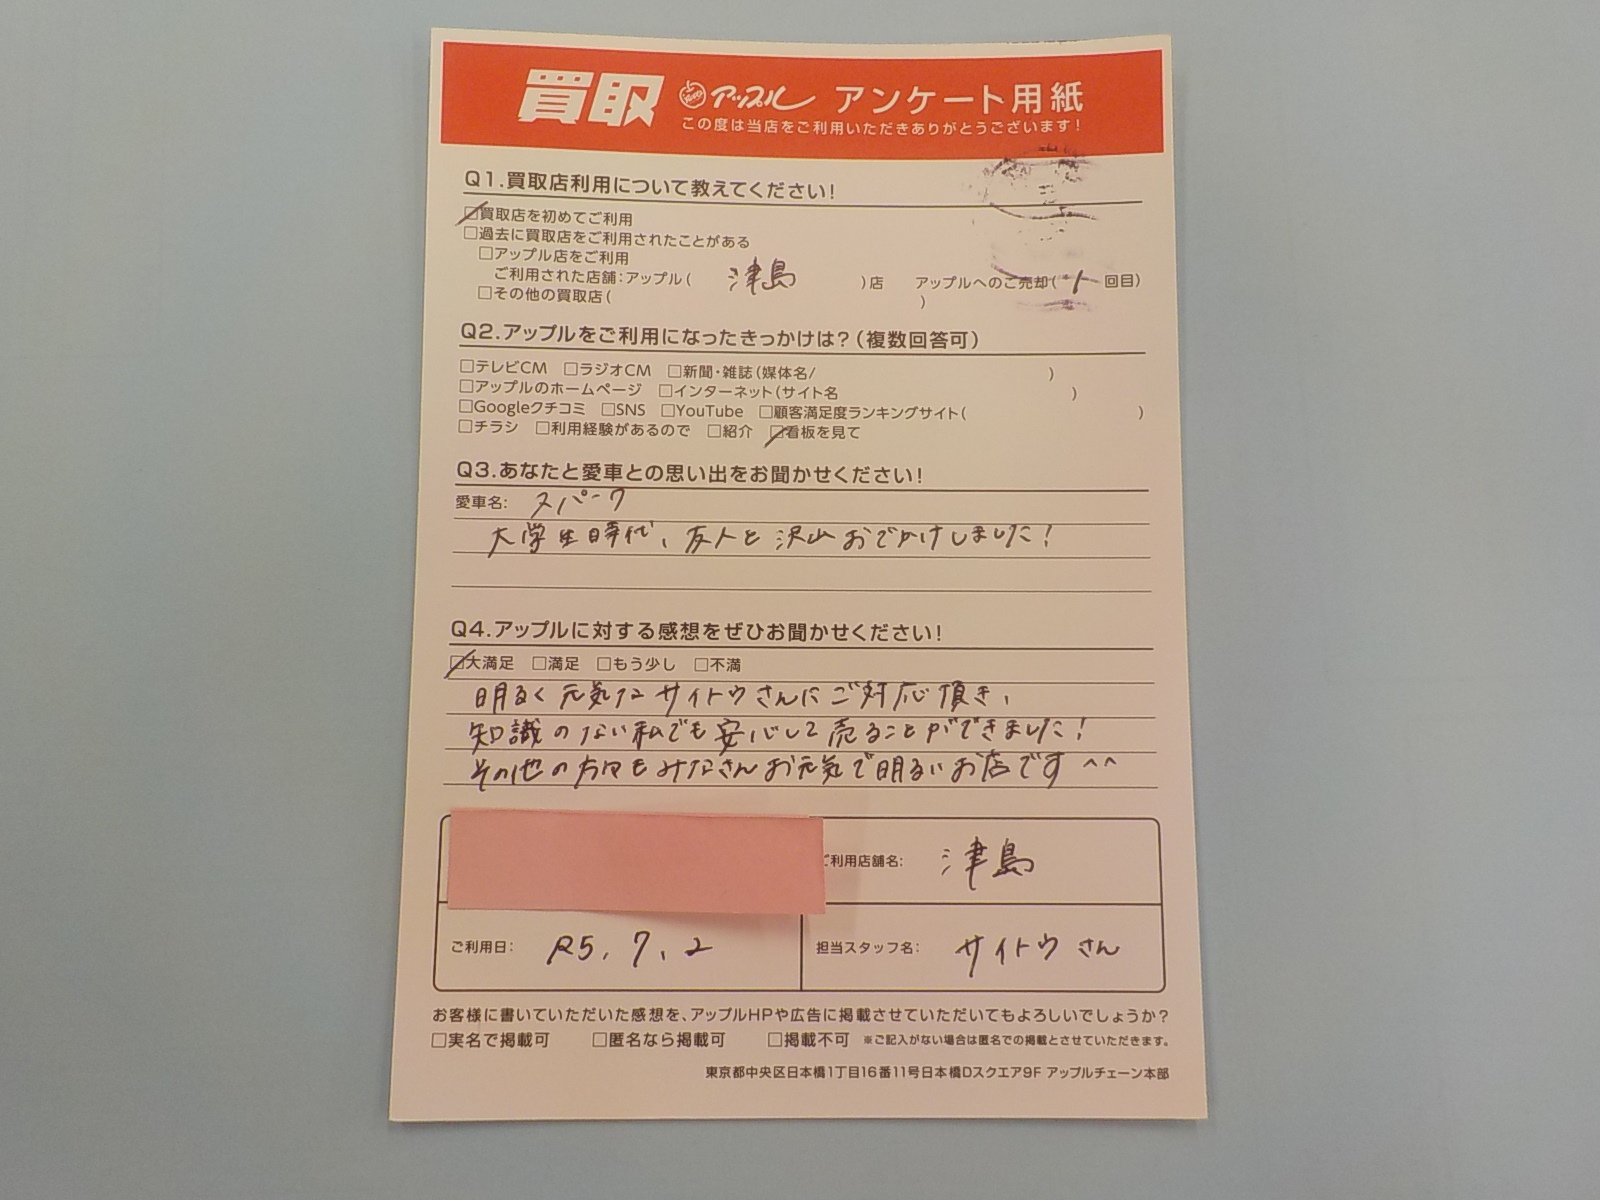 買取 アップル アンケート用紙
この度は当店をご利用いただきありがとうございます！
Q1.買取店利用について教えてください！
□買取店を初めてご利用
□過去に買取店をご利用されたことがある
□アップル店をご利用
ご利用された店舗:アップル( 津島 )店 アップルへのご売却( 1 回目)
□その他の買取店( )
Q2.アップルをご利用になったきっかけは？(複数回答可)
□テレビCM □ラジオCM □新聞・雑誌(媒体名/ )
□アップルのホームページ □インターネット(サイト名 )
□Googleクチコミ □SNS □YouTube □顧客満足度ランキングサイト( )
□チラシ □利用経験があるので □紹介 □看板を見て
Q3.あなたと愛車との思い出をお聞かせください！
愛車名: スパーク
大学生時代、友人と沢山おでかけしました！
Q4.アップルに対する感想をぜひお聞かせください！
□大満足 □満足 □もう少し □不満
明るく元気なサイトウさんにご対応頂き、
知識のない私でも安心して売ることができました！
その他の方々もみなさんお元気で明るいお店です^^
ご利用店舗名: 津島
ご利用日: R5.7.2 担当スタッフ名: サイトウさん
お客様に書いていただいた感想を、アップルHPや広告に掲載させていただいてもよろしいでしょうか？
□実名で掲載可 □匿名なら掲載可 □掲載不可 ※ご記入がない場合は匿名での掲載とさせていただきます。
東京都中央区日本橋1丁目16番11号日本橋Dスクエア9F アップルチェーン本部